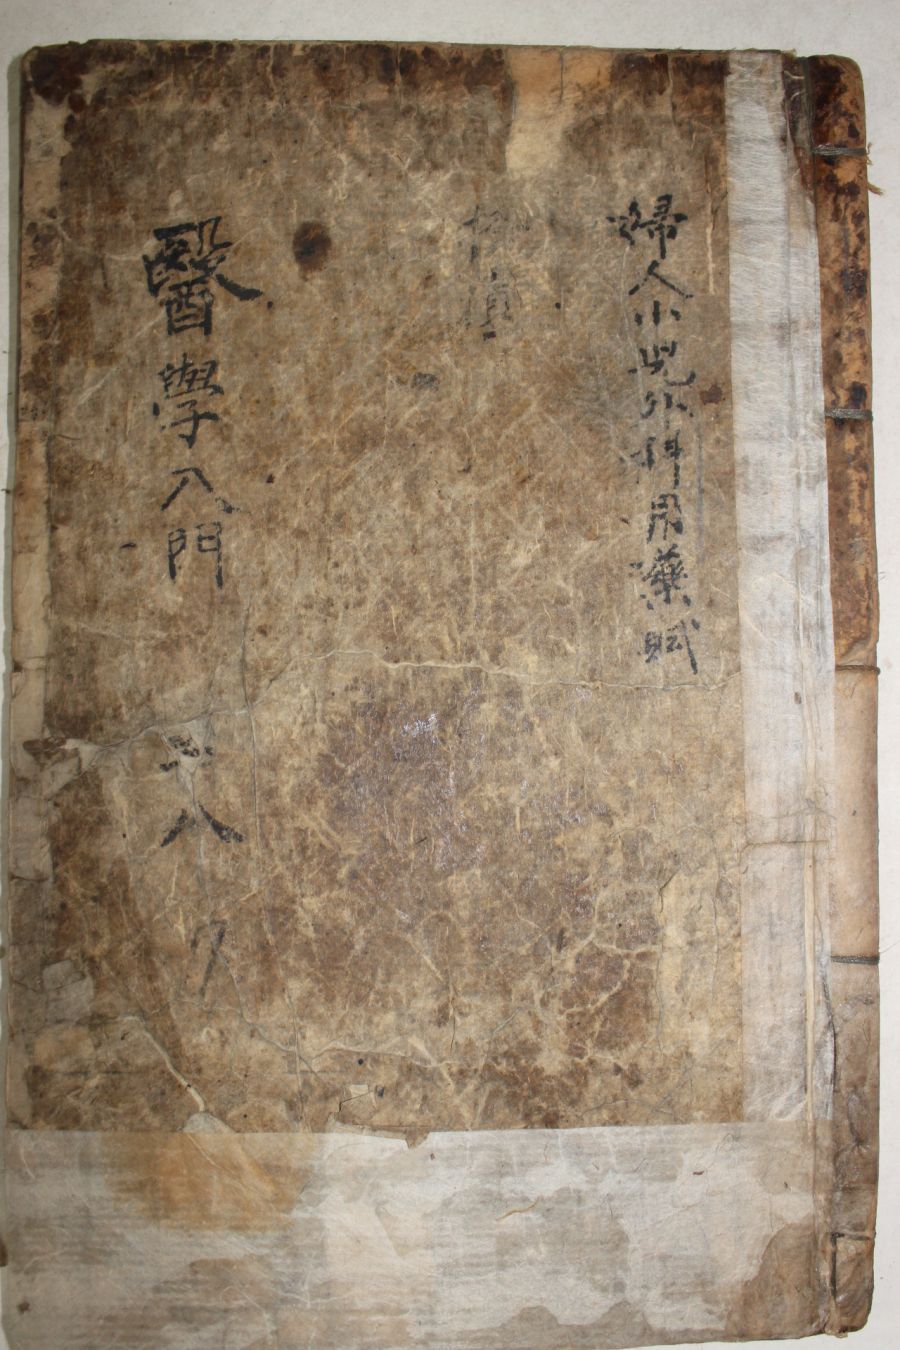 婦人小児外科用藥賦
醫學入門
八